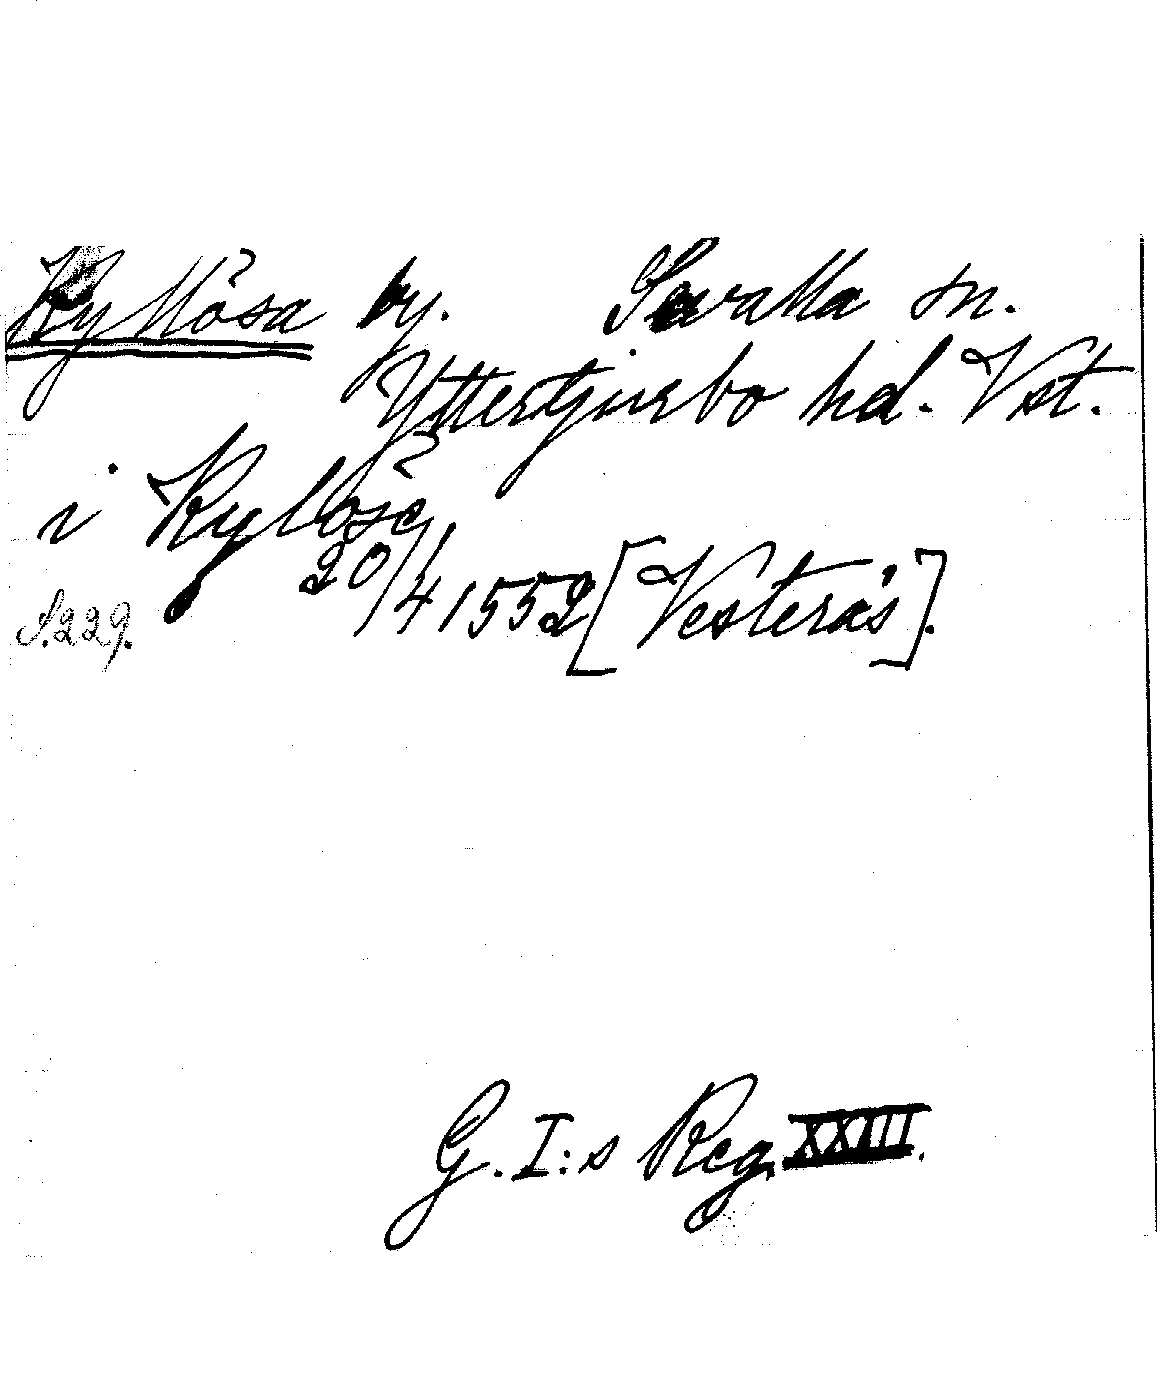 Kyllösa by. Sevalla sn.
Yttertjurbo hd. Vst.
i Kyllöse
S. 229. 20/4 1552 [Vesterås].
G. I:s Reg. XXIII.